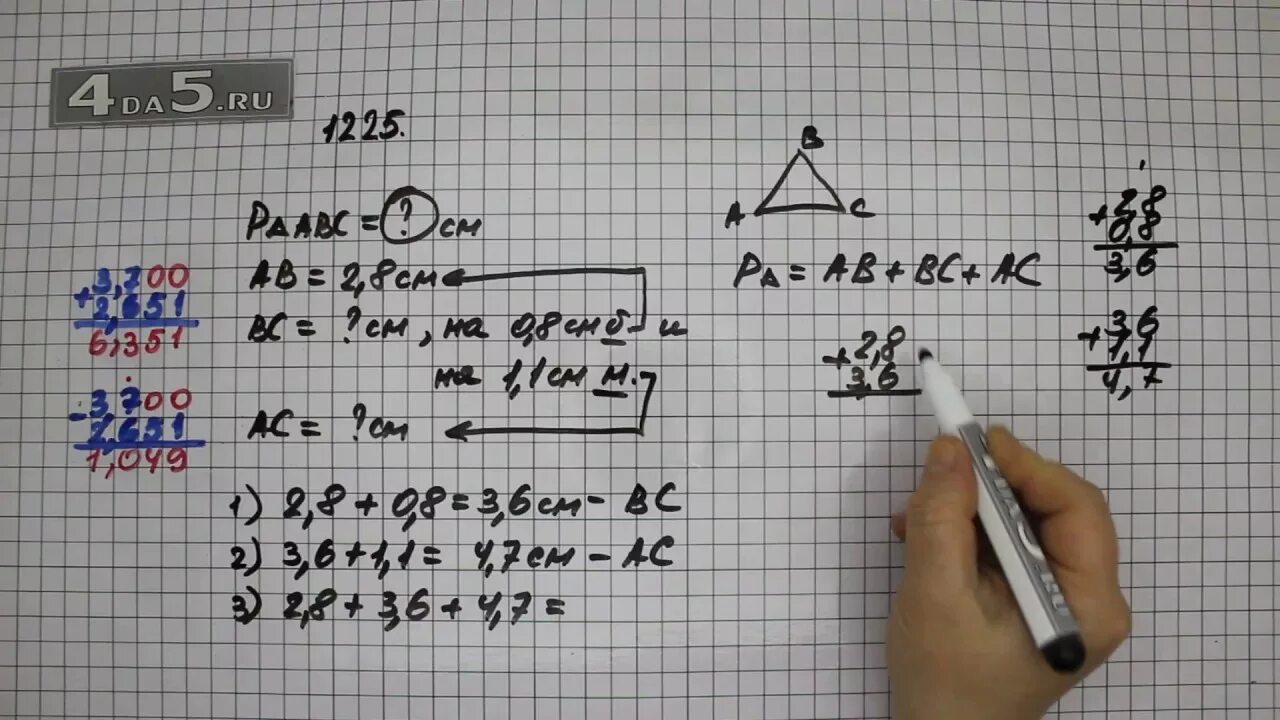 4DA5.RU
1225.
P∆ABC = ? см
AB = 2,8 см
BC = ? см, на 0,8 см б. и
на 1,1 см м.
AC = ? см
1) 2,8 + 0,8 = 3,6 см - BC
2) 3,6 + 1,1 = 4,7 см - AC
3) 2,8 + 3,6 + 4,7 =
+3,700
2,651
6,351
-3,700
2,651
1,049
B
A
C
P∆ = AB + BC + AC
+2,8
3,6
+2,8
0,8
3,6
+3,6
1,1
4,7